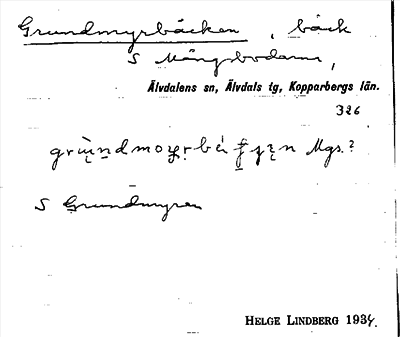 Grundmyrbäcken, bäck
S Mångsbodarna,
Älvdalens sn, Älvdals tg, Kopparbergs län.
326
Mgs.?
S Grundmyren
HELGE LINDBERG 1934.